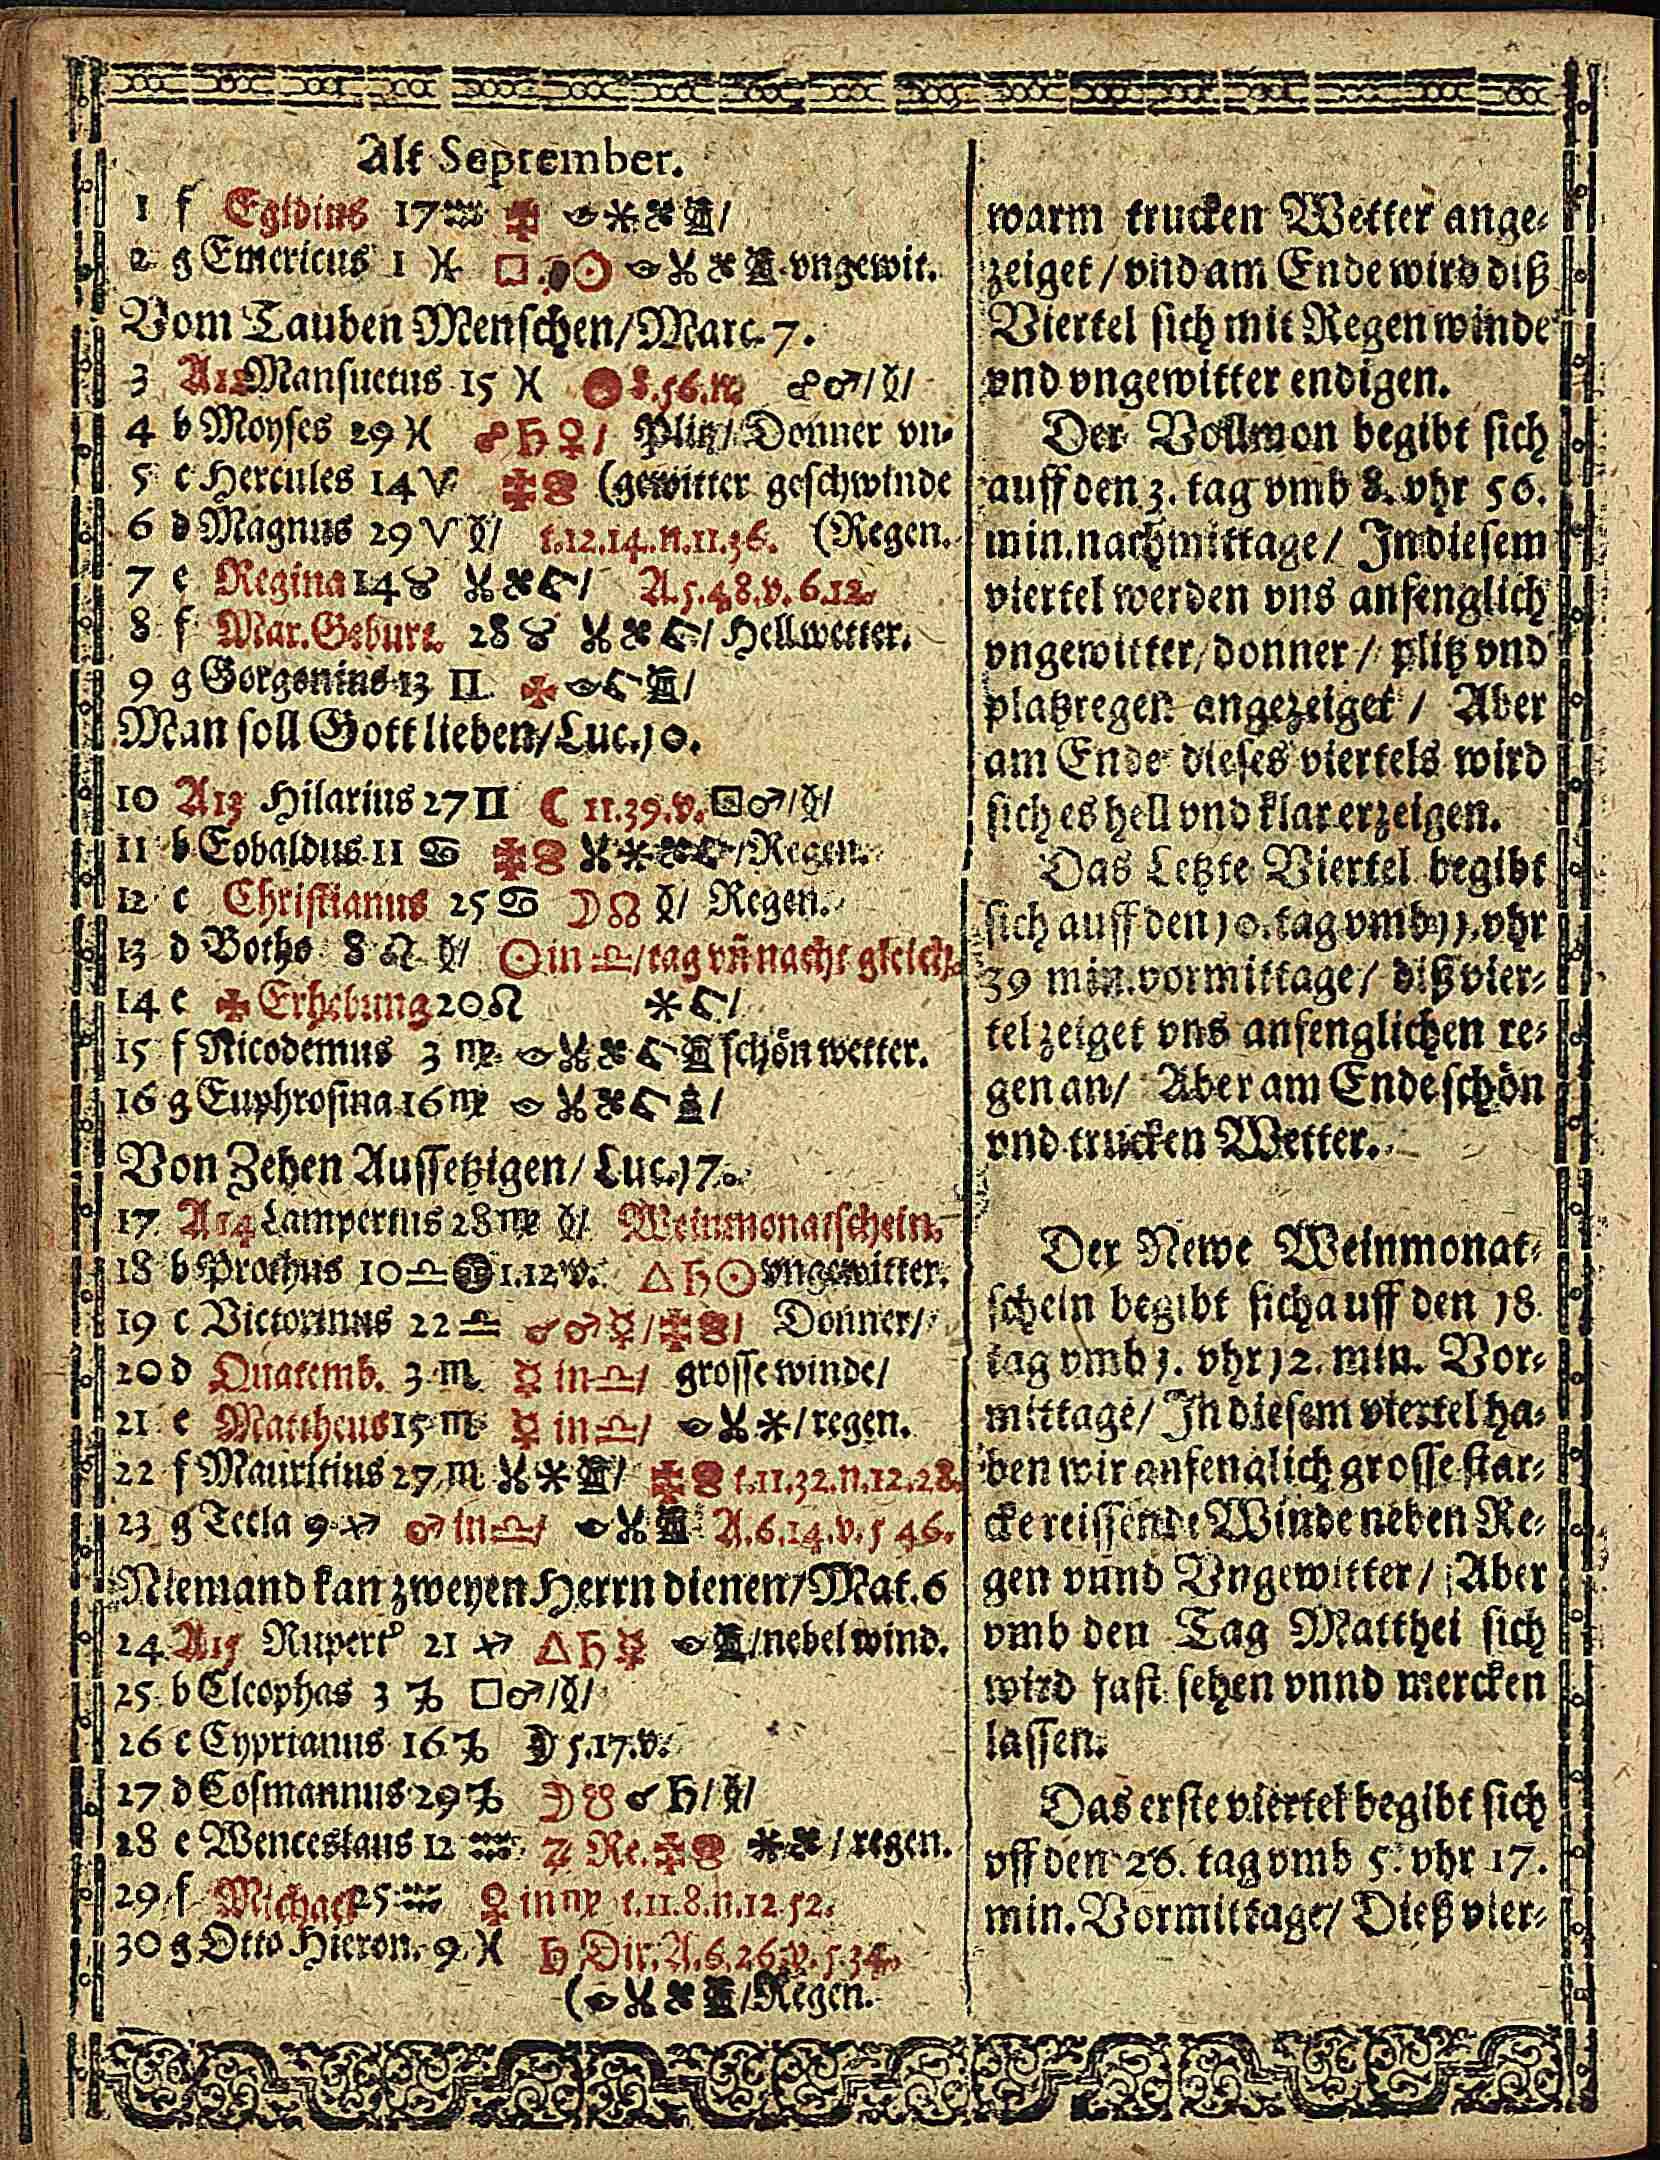 Alt September.
1 f Egidius 17 ♒
2 g Emericus 1 ♓ □ ☉ vngewit.
Vom Tauben Menschen/Marc. 7.
3 A12 Mansuetus 15 ♓ 8.56.n. ☍♂/☿/
4 b Moyses 29 ♓ ☍♄♀/ Plitz/Donner vn-
5 c Hercules 14 ♈ (gewitter geschwinde
6 d Magnus 29 ♈ / t.12.14.n.11.36. (Regen.
7 e Regina 14 ♉ / A.5.48.v.6.12.
8 f Mar.Geburt. 28 ♉ / Hellwetter.
9 g Gorgonius 13 ♊ /
Man soll Gott lieben/Luc.10.
10 A13 Hilarius 27 ♊ ☾ 11.39.v. □♂/ /
11 b Eobaldus 11 ♋ /Regen.
12 c Christianus 25 ♋ ☽☊ / Regen.
13 d Bothо 8 ♌ / ☉ in ♎/tag vñ nacht gleich.
14 e Erhebung 20 ♌ /
15 f Nicodemus 3 ♍ schön wetter.
16 g Euphrosina 16 ♍ /
Von Zehen Aussetzigen/Luc.17.
17 A14 Lampertus 28 ♍ / Weinmonatschein.
18 b Prothus 10 ♎ 1.12 v. △♄☉ vngewitter.
19 c Victorinus 22 ♎ ☌♂☿/ / Donner/
20 d Quatemb. 3 ♏ ☿ in ♎/ grosse winde/
21 e Mattheus 15 ♏ ☿ in ♎/ /regen.
22 f Mauritius 27 ♏ / t.11.32.n.12.28.
23 g Tecla 9 ♐ ♂ in ♎/ A.6.14.v.5 46.
Niemand kan zweyen Herrn dienen/Mat.6
24 A15 Rupert⁹ 21 ♐ △♄☿ /nebel wind.
25 b Cleophas 3 ♑ □♂/ /
26 c Cyprianus 16 ♑ ☽ 5.17.v.
27 d Cosmannus 29 ♑ ☽☋ ☌♄/ /
28 e Wenceslaus 12 ♒ ♃ Re. /regen.
29 f Michael 25 ♒ ♀ in ♍ t.11.8.n.12.52.
30 g Otto Hieron. 9 ♓ ♄ Dir. A.6.26.v.5.34.
( /Regen.
warm trucken Wetter ange-
zeiget/vnd am Ende wird diß
Viertel sich mit Regen winde
vnd vngewitter endigen.
Der Vollmon begibt sich
auff den 3. tag vmb 8. vhr 56.
min.nachmittage/ In diesem
viertel werden vns anfenglich
vngewitter/donner/ plitz vnd
platzregen angezeiget/ Aber
am Ende dieses viertels wird
sich es hell vnd klar erzeigen.
Das Letzte Viertel begibt
sich auff den 10.tag vmb 11.vhr
39 min.vormittage/ diß vier-
tel zeiget vns anfenglichen re-
gen an/ Aber am Ende schön
vnd trucken Wetter.
Der Newe Weinmonat-
schein begibt sich auff den 18.
tag vmb 1. vhr 12. min. Vor-
mittage/ In diesem viertel ha-
ben wir anfenglich grosse star-
cke reissende Winde neben Re-
gen vnnd Vngewitter/ Aber
vmb den Tag Matthei sich
wird fast sehen vnnd mercken
lassen.
Das erste viertel begibt sich
vff den 26. tag vmb 5. vhr 17.
min. Vormittage/ Dieß vier-